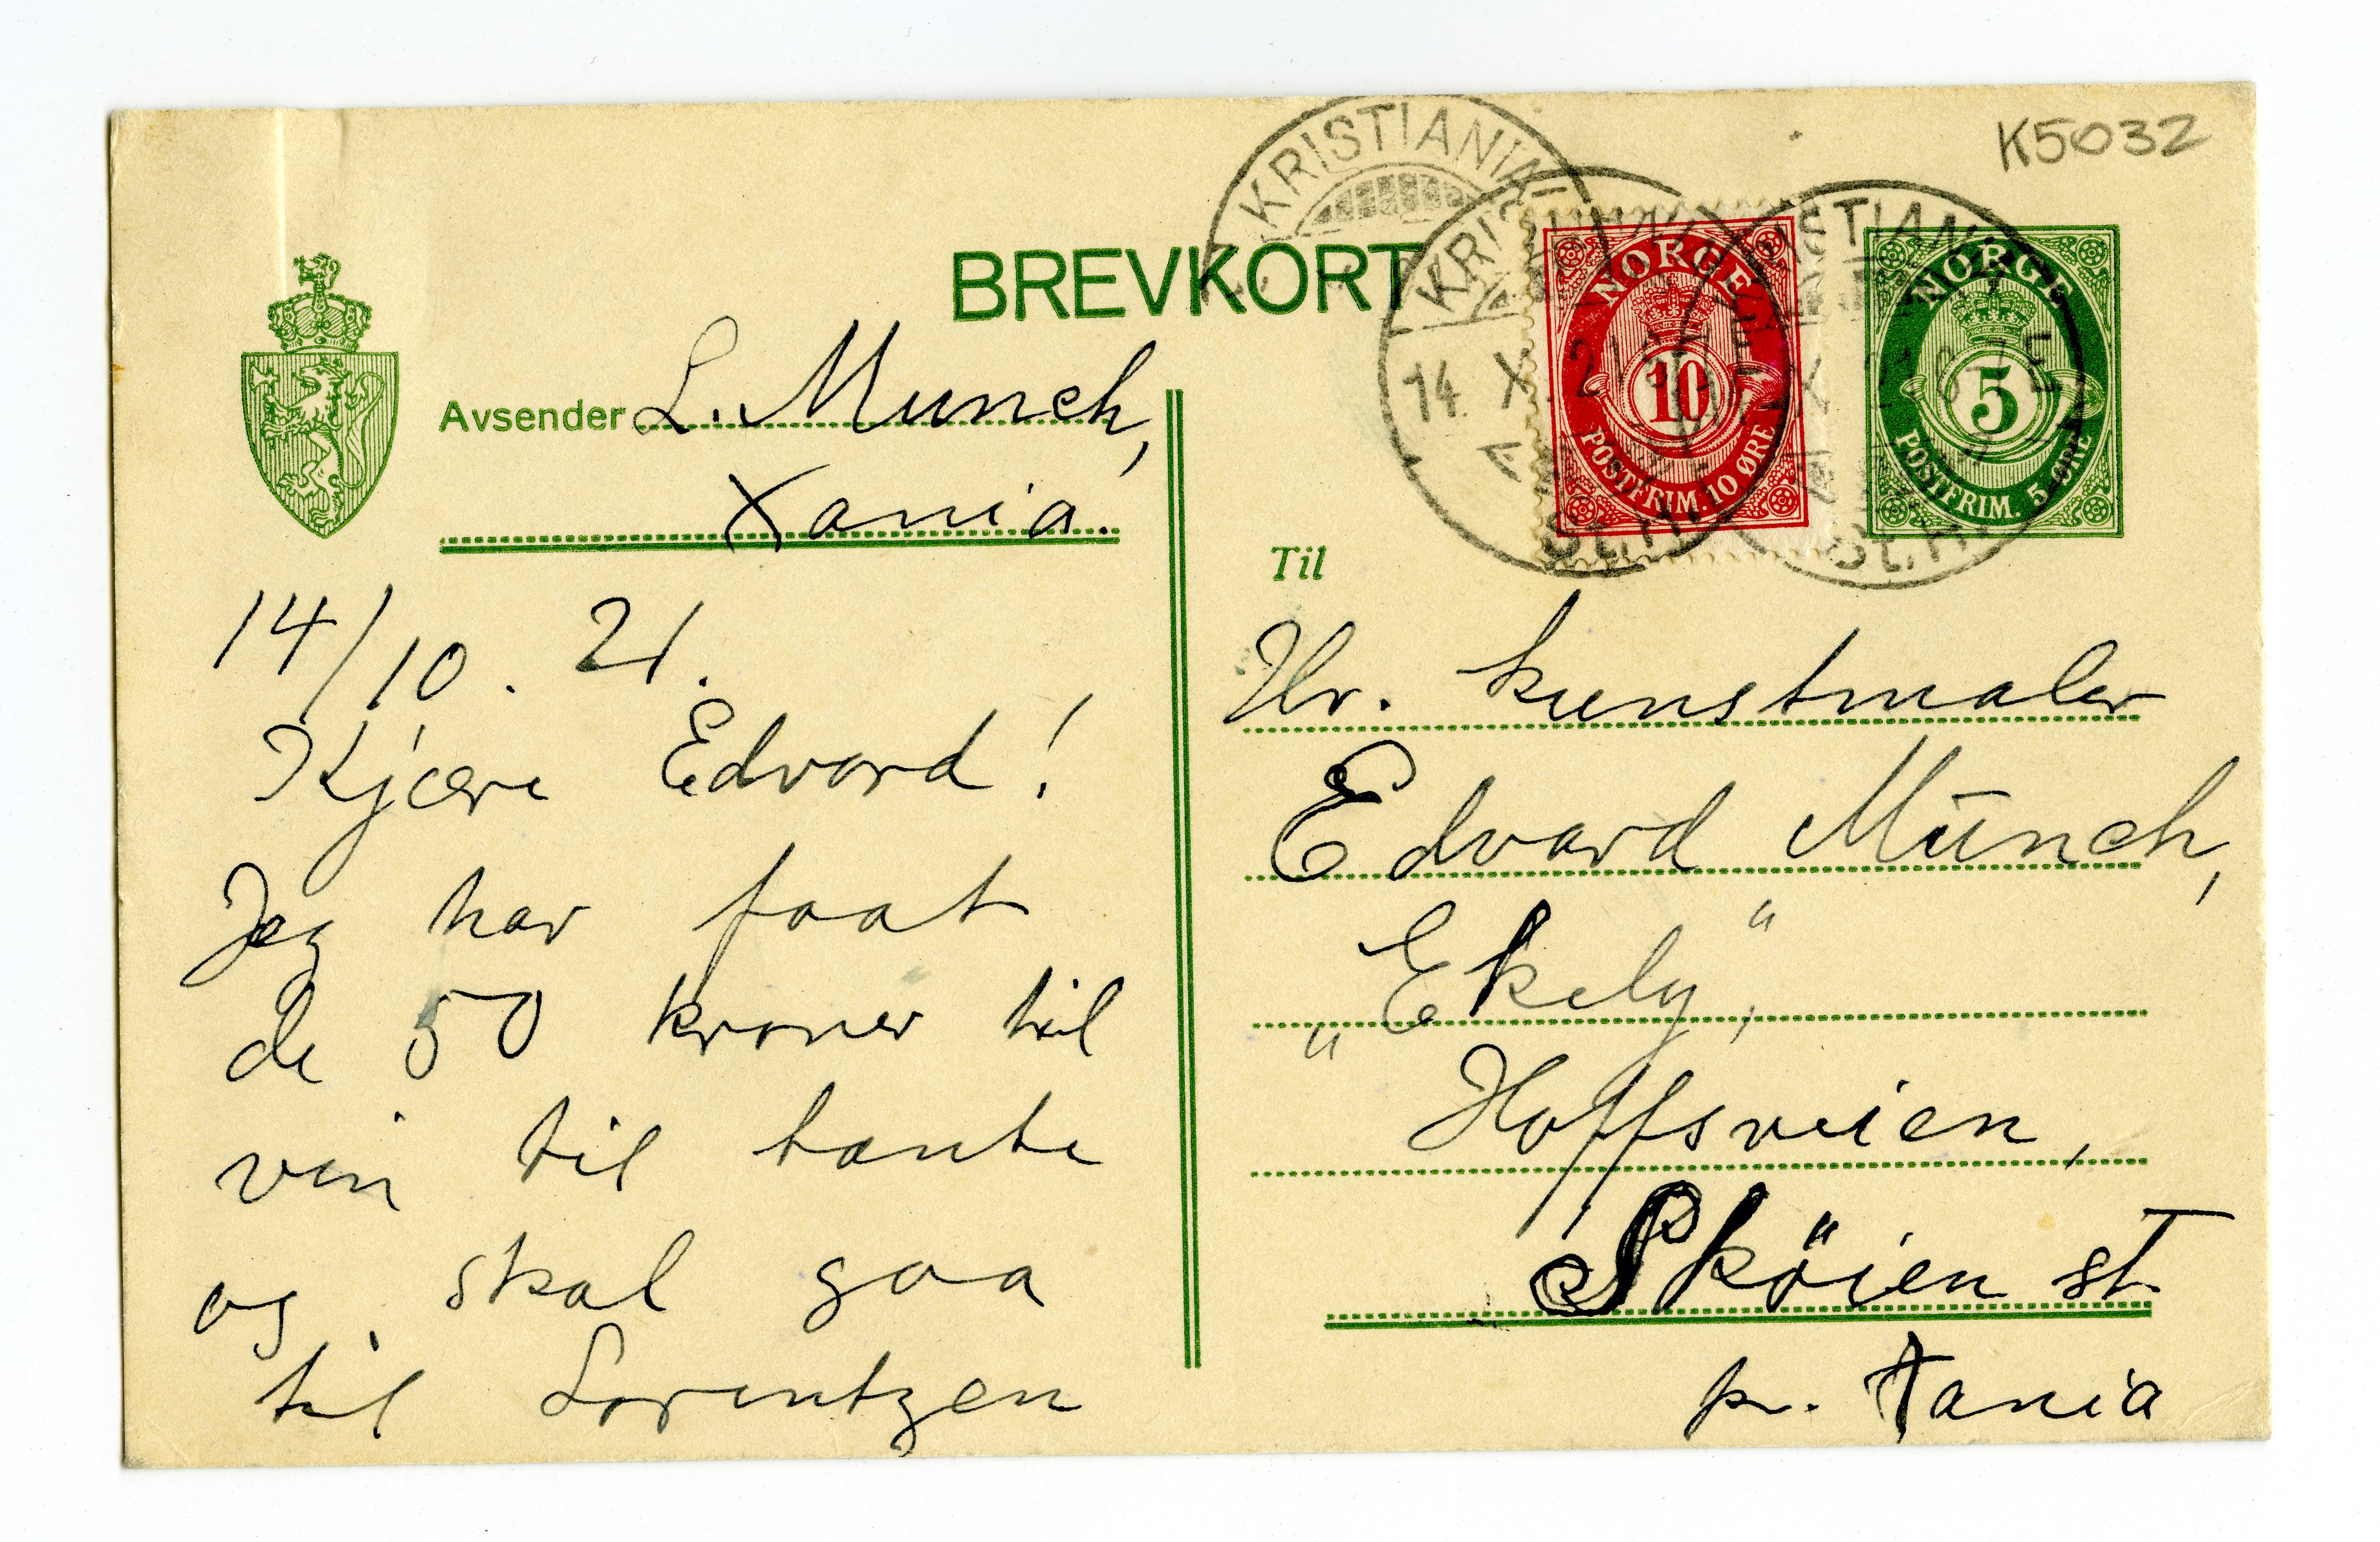 K5032
BREVKORT
KRISTIANIA
KRISTIANIA
14 X 21
St.H.
NORGE
10
POSTFRIM. 10 ØRE
NORGE
5
POSTFRIM. 5 ØRE
Avsender L. Munch,
Xania.
14/10. 21.
Kjære Edvard!
Jeg har faat
de 50 kroner til
vin til tante
og skal gaa
til Lorentzen
Til
Hr. kunstmaler
Edvard Münch,
„Ekely",
Hoffsveien,
Sköien st.
pr. Xania